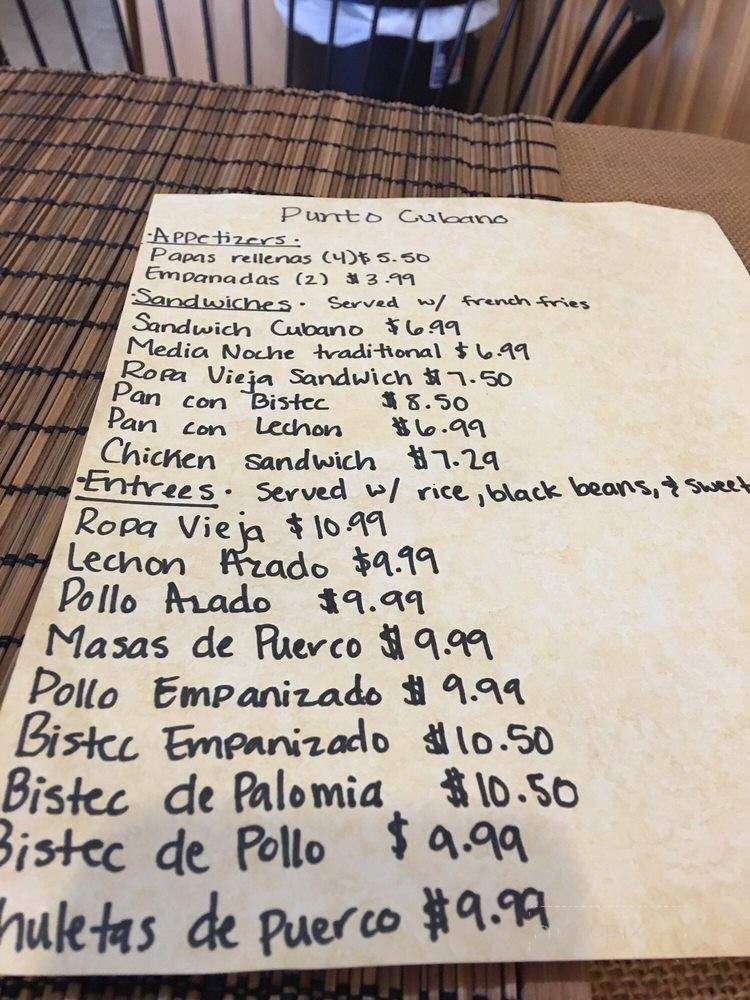 Punto Cubano
·Appetizers·
Papas rellenas (4)$5.50
Empanadas (2) $3.99
·Sandwiches· Served w/ french fries
Sandwich Cubano $6.99
Media Noche traditional $6.99
Ropa Vieja Sandwich $7.50
Pan con Bistec $8.50
Pan con Lechon $6.99
Chicken Sandwich $7.29
·Entrees· Served w/ rice, black beans, & sweet
Ropa Vieja $10.99
Lechon Azado $9.99
Pollo Azado $9.99
Masas de Puerco $9.99
Pollo Empanizado $9.99
Bistec Empanizado $10.50
Bistec de Palomia $10.50
Bistec de Pollo $9.99
huletas de puerco $9.99